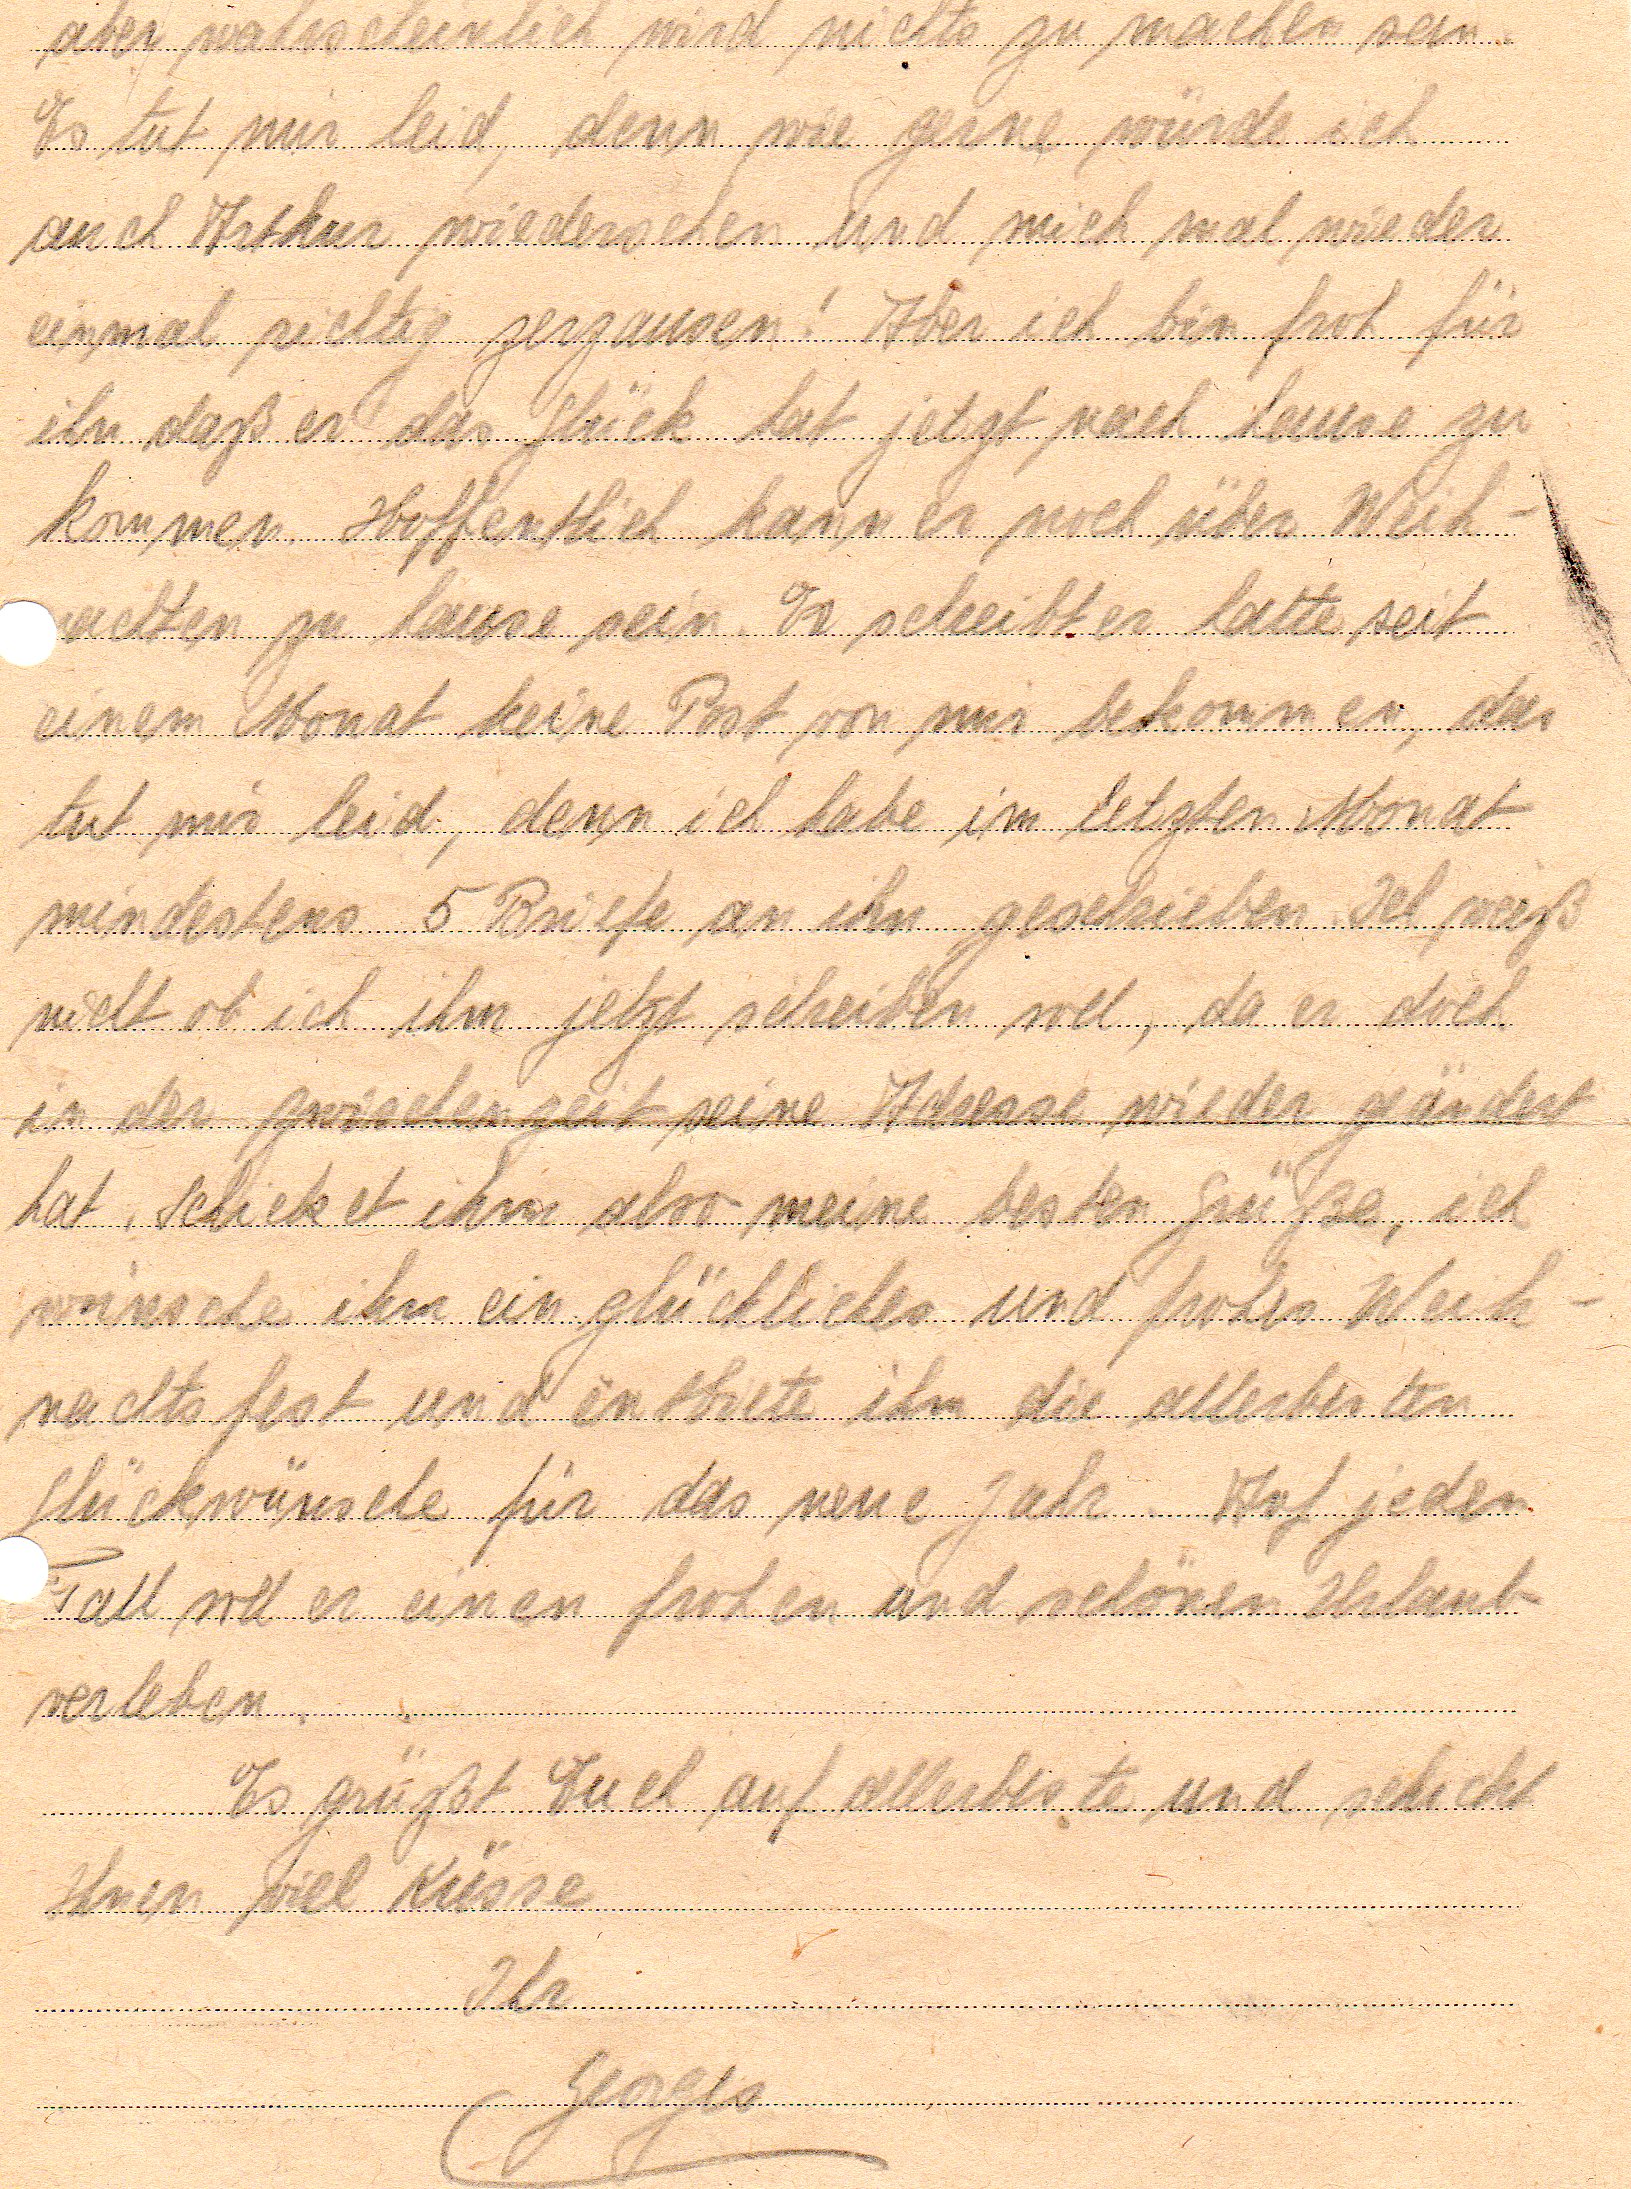 aber wahrscheinlich wird nichts zu machen sein.
Es tut mir leid, denn wie gerne würde ich
auch Arthur wiedersehen und mich mal wieder
einmal richtig zerzausen! Aber ich bin froh für
ihn daß er das Glück hat jetzt nach hause zu
kommen. Hoffentlich kann er noch über Weih-
nachten zu hause sein. Er schreibt er hatte seit
einem Monat keine Post von mir bekommen, das
tut mir leid, denn ich habe im letzten Monat
mindestens 5 Briefe an ihn geschrieben. Ich weiß
nicht ob ich ihm jetzt schreiben soll, da er doch
in der zwischenzeit seine Adresse wieder geändert
hat. Schicket ihm also meine besten Grüße, ich
wünsche ihm ein glückliches und frohes Weih-
nachtsfest und entbiete ihm die allerbesten
Glückwünsche für das neue Jahr. Auf jeden
Fall soll er einen frohen und schönen Urlaub
verleben.
Es grüßt Euch auf allerbeste und schickt
Ihnen viel Küsse
Ihr
Georges